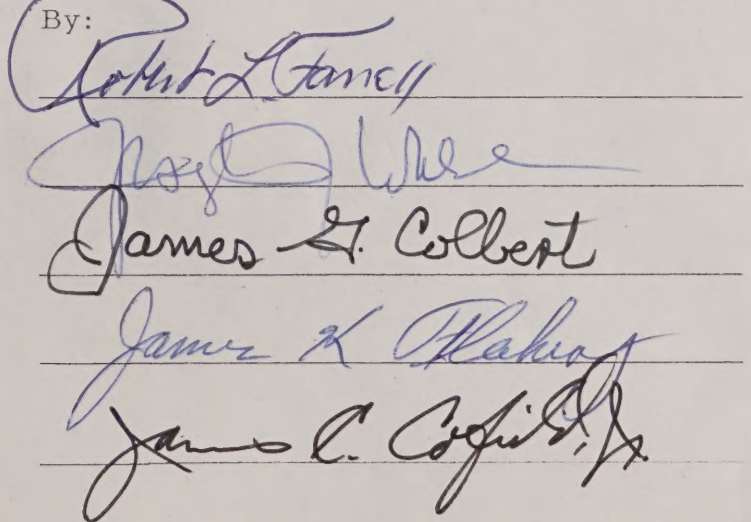 By:
Robert L. Farrell
James G. Colbert
James K Flaherty
James C. Cofield, Jr.